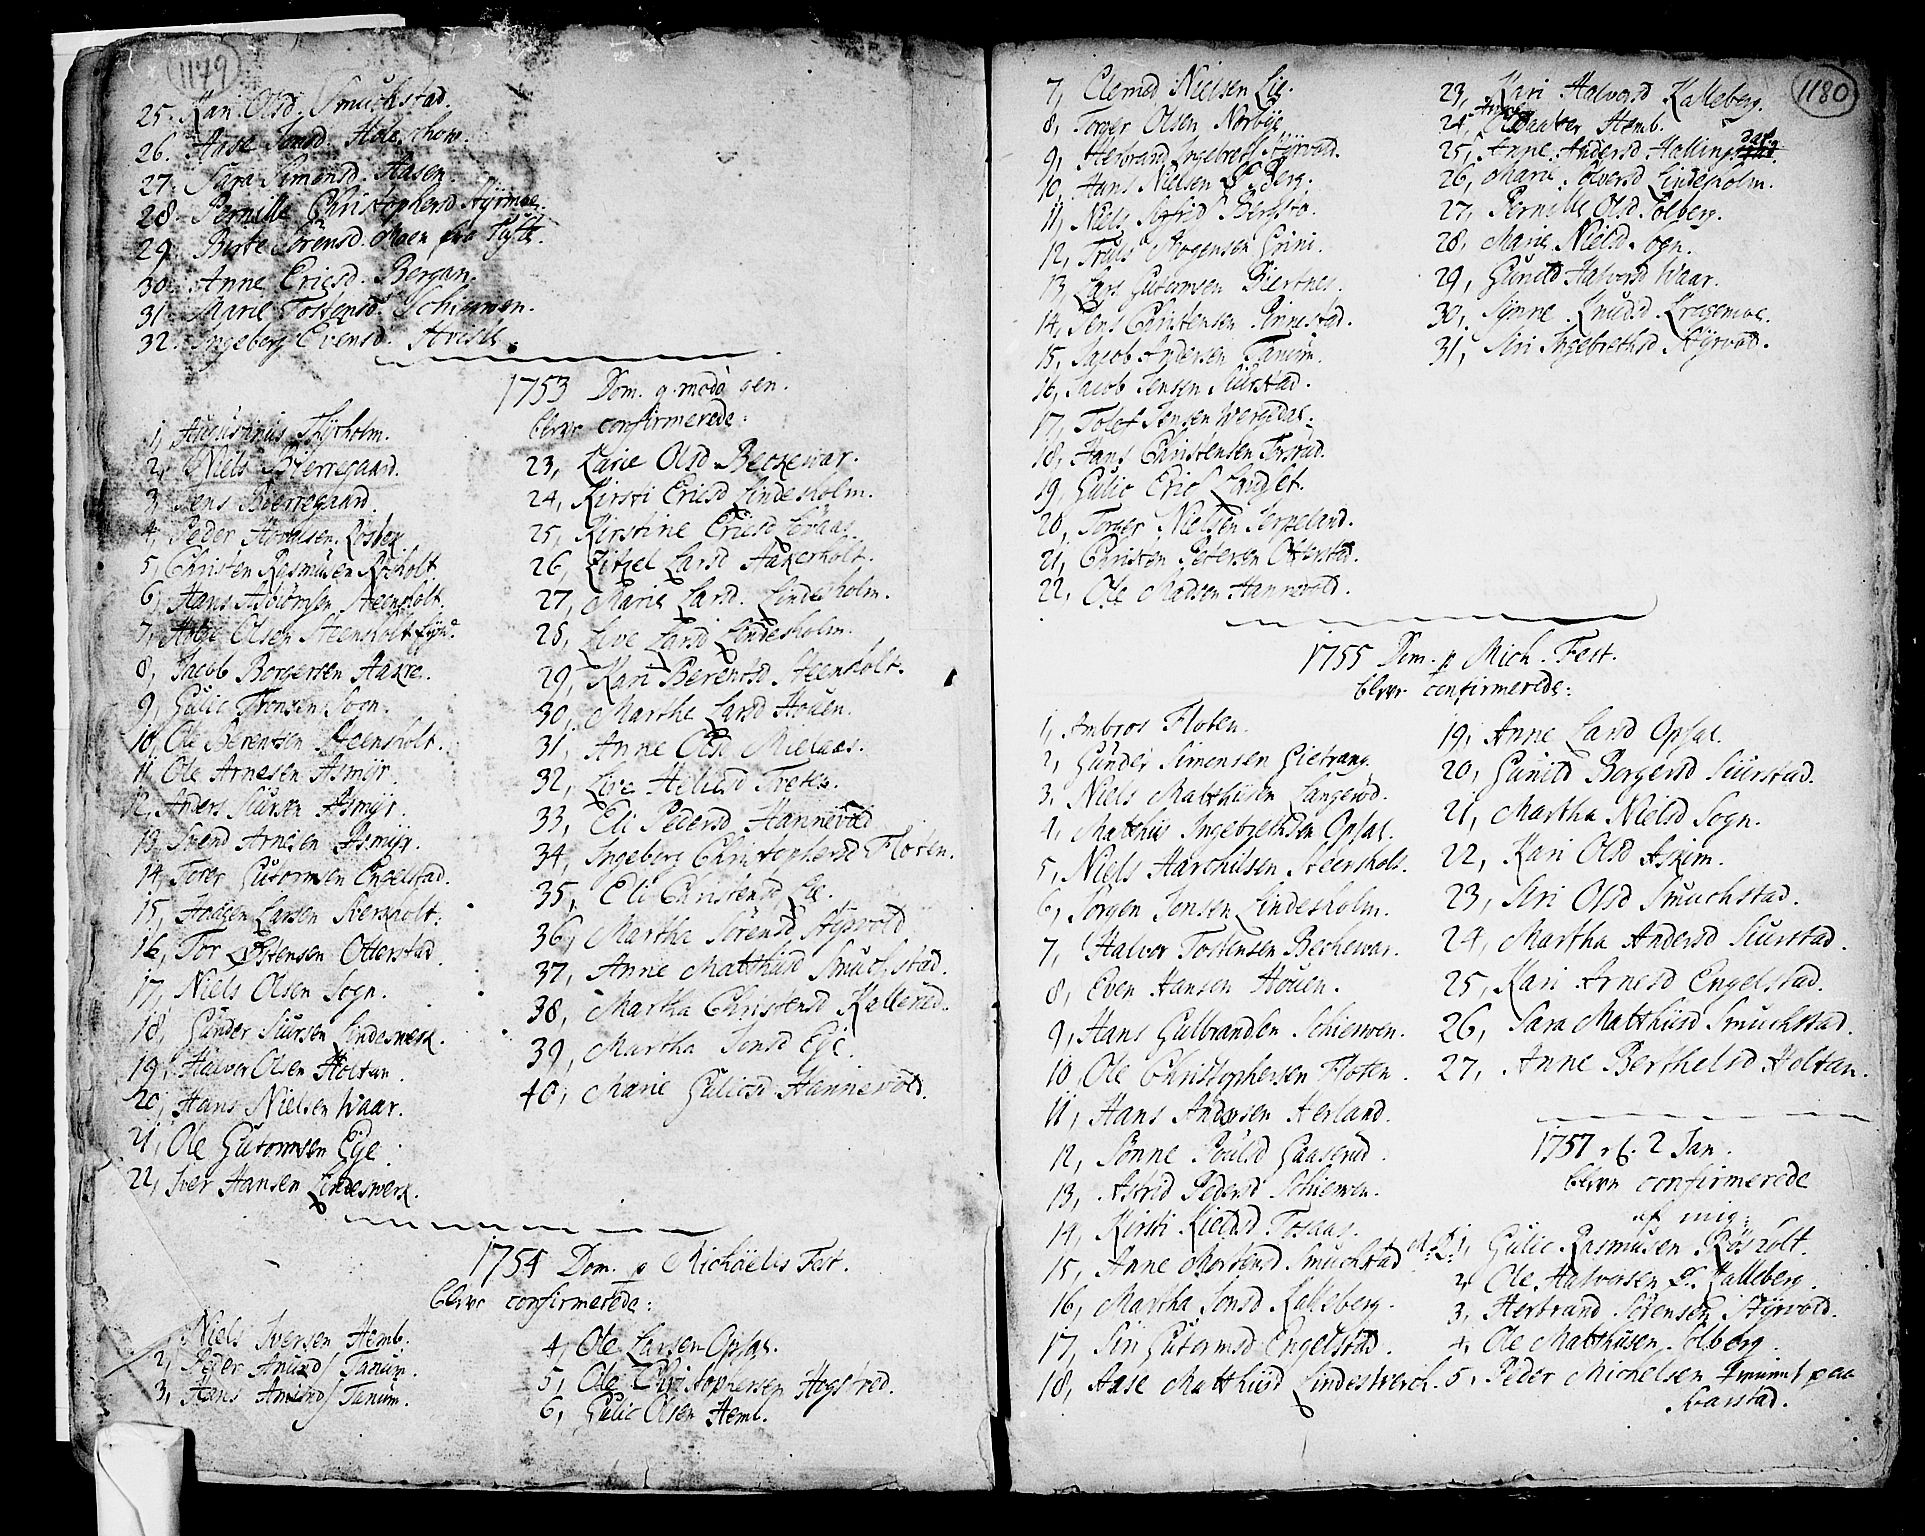 1179
25. Kari Olsd. Smuchstad.
26. Aase Jonsd.
27. Sara Simensd. Aasen.
28. Pernille Christophersd Styrmoe.
29. Birte Sörensd. Moen fra Tufte.
30. Anne Ericsd. Bergan.
31. Marie Tostensd. Schiewen.
32. Ingeberg Evensd.
1753 Dom. q. modo gen.
blewe confirmerede:
1, Augustinus Thyrholm.
2, Niels Bierregaard.
3, Jens Bierregaard.
4, Peder
5, Christen Rasmusen Rösholt
6, Hans Asbiörnsen Steensholt.
7, Helge Olsen Steensholt
8, Jacob Borgersen Aakre.
9, Gulic Tronsen Sogn.
10, Ole Berentsen Steensholt.
11, Ole Arnesen Asmyr.
12, Anders Siursen Asmyr.
13, Svend Arnesen Asmyr.
14, Torer Gutormsen Engelstad.
15, Haagen Larsen
16, Tor Östensen Otterstad.
17, Niels Olsen Sogn.
18, Gunder Siursen Lindeswerk.
19, Halvor Olsen Holtan.
20, Hans Nielsen Waar.
21, Ole Gutormsen Ege.
22, Iver Hansen Lindeswerk.
23, Karie Olsd Beckewar.
24, Kirsti Ericsd Lindesholm.
25, Kirstine Ericsd
26, Zidzel Larsd Aakerholt.
27, Marie Larsd. Lindesholm.
28, Live Larsd Lindesholm.
29, Kari Berentsd Steensholt.
30, Marthe Larsd Houen.
31, Anne Olsd
32, Live
33, Eli Pedersd Hannevold
34, Ingeberg Christophersd Floten.
35, Eli Christensd Lie.
36, Martha Sörensd Styrvold
37, Anne Matthiisd Smuchstad.
38, Martha Christensd Kallerud.
39, Martha Jonsd Eje.
40, Marie Gulicsd Hannevold.
1754 Dom. p Michäelis Fest.
blewe confirmerede:
1, Niels Iversen Hemb.
2, Peder Amunds Tanum.
3, Hans Amunds Tanum.
4, Ole Larsen Opsal.
5, Ole Christophersen Hogsröd.
6, Gulic Olsen Heml.
1180
7, Clemed Nielsen Lie.
8, Torger Olsen Norbye.
9, Herbrand Ingebrets Styrvold.
10, Hans Nielsen Berg.
11, Niels
12, Truls Mogensen Grini.
13, Lars Gutormsen Biertnes.
14, Jens Christensen Rinnestad.
15, Jacob Andersen Tanum.
16, Jacob Jensen Siurstad.
17, Tolef Jensen
18, Hans Christensen Torstad.
19, Gulic Erics Langlet.
20, Torger Nielsen
21, Christen Petersen Otterstad.
22, Ole Madsen Hannevold.
23, Kari Halvorsd Kalleberg.
24, Hemb.
25, Anne Andersd Hallingstad. dahl
26, Marie Solversd Lindesholm.
27, Pernille Olsd Solberg.
28, Marie Nielsd. Sogn.
29, Gunild Halvorsd Waar.
30, Synne Knudsd Kragemoe.
31, Siri Ingebrethsd Styrvold.
1755 Dom. p Mich. Fest.
blewe confirmerede:
1, Ambros Floten.
2, Gunder Simensen Gietrang.
3, Niels Matthiisen Langeröd.
4, Matthis Ingebrethsen Opsal.
5, Niels Harchildsen Steensholt.
6, Jörgen Jonsen Lindesholm.
7, Halvor Tostensen Beckewar.
8, Even Hansen Houen.
9, Hans Gulbrandsen Schiewen.
10, Ole Christophersen Floten.
11, Hans Andersen Aerland.
12, Sönne Poulsd Gaaserud.
13, Astrid Pedersd Schiewen.
14, Kirsti Kieldsd Tosaas.
15, Anne Mortensd Smuchstad
16, Martha Jonsd Kalleberg.
17, Siri Gutormsd Engelstad.
18, Aase Matthiisd Lindeswerch.
19, Anne Larsd Opsal.
20, Gunild Borgersd Siurstad.
21, Martha Nielsd Sogn.
22, Kari Olsd Askim.
23, Siri Olsd Smuchstad.
24, Martha Andersd Siurstad.
25, Kari Arnesd Engelstad.
26, Sara Matthiisd Smuchstad.
27, Anne Berthelsd Holtan.
1757 2 Jan.
blewe confirmerede
af mig:
1, Gulic Rasmusen Rösholt.
2, Ole Halvorsen Kalleberg.
3, Herbrand Sörensen Styrvold.
4, Ole Matthiisen Solberg.
5, Peder Michelsen paa
Svarstad.